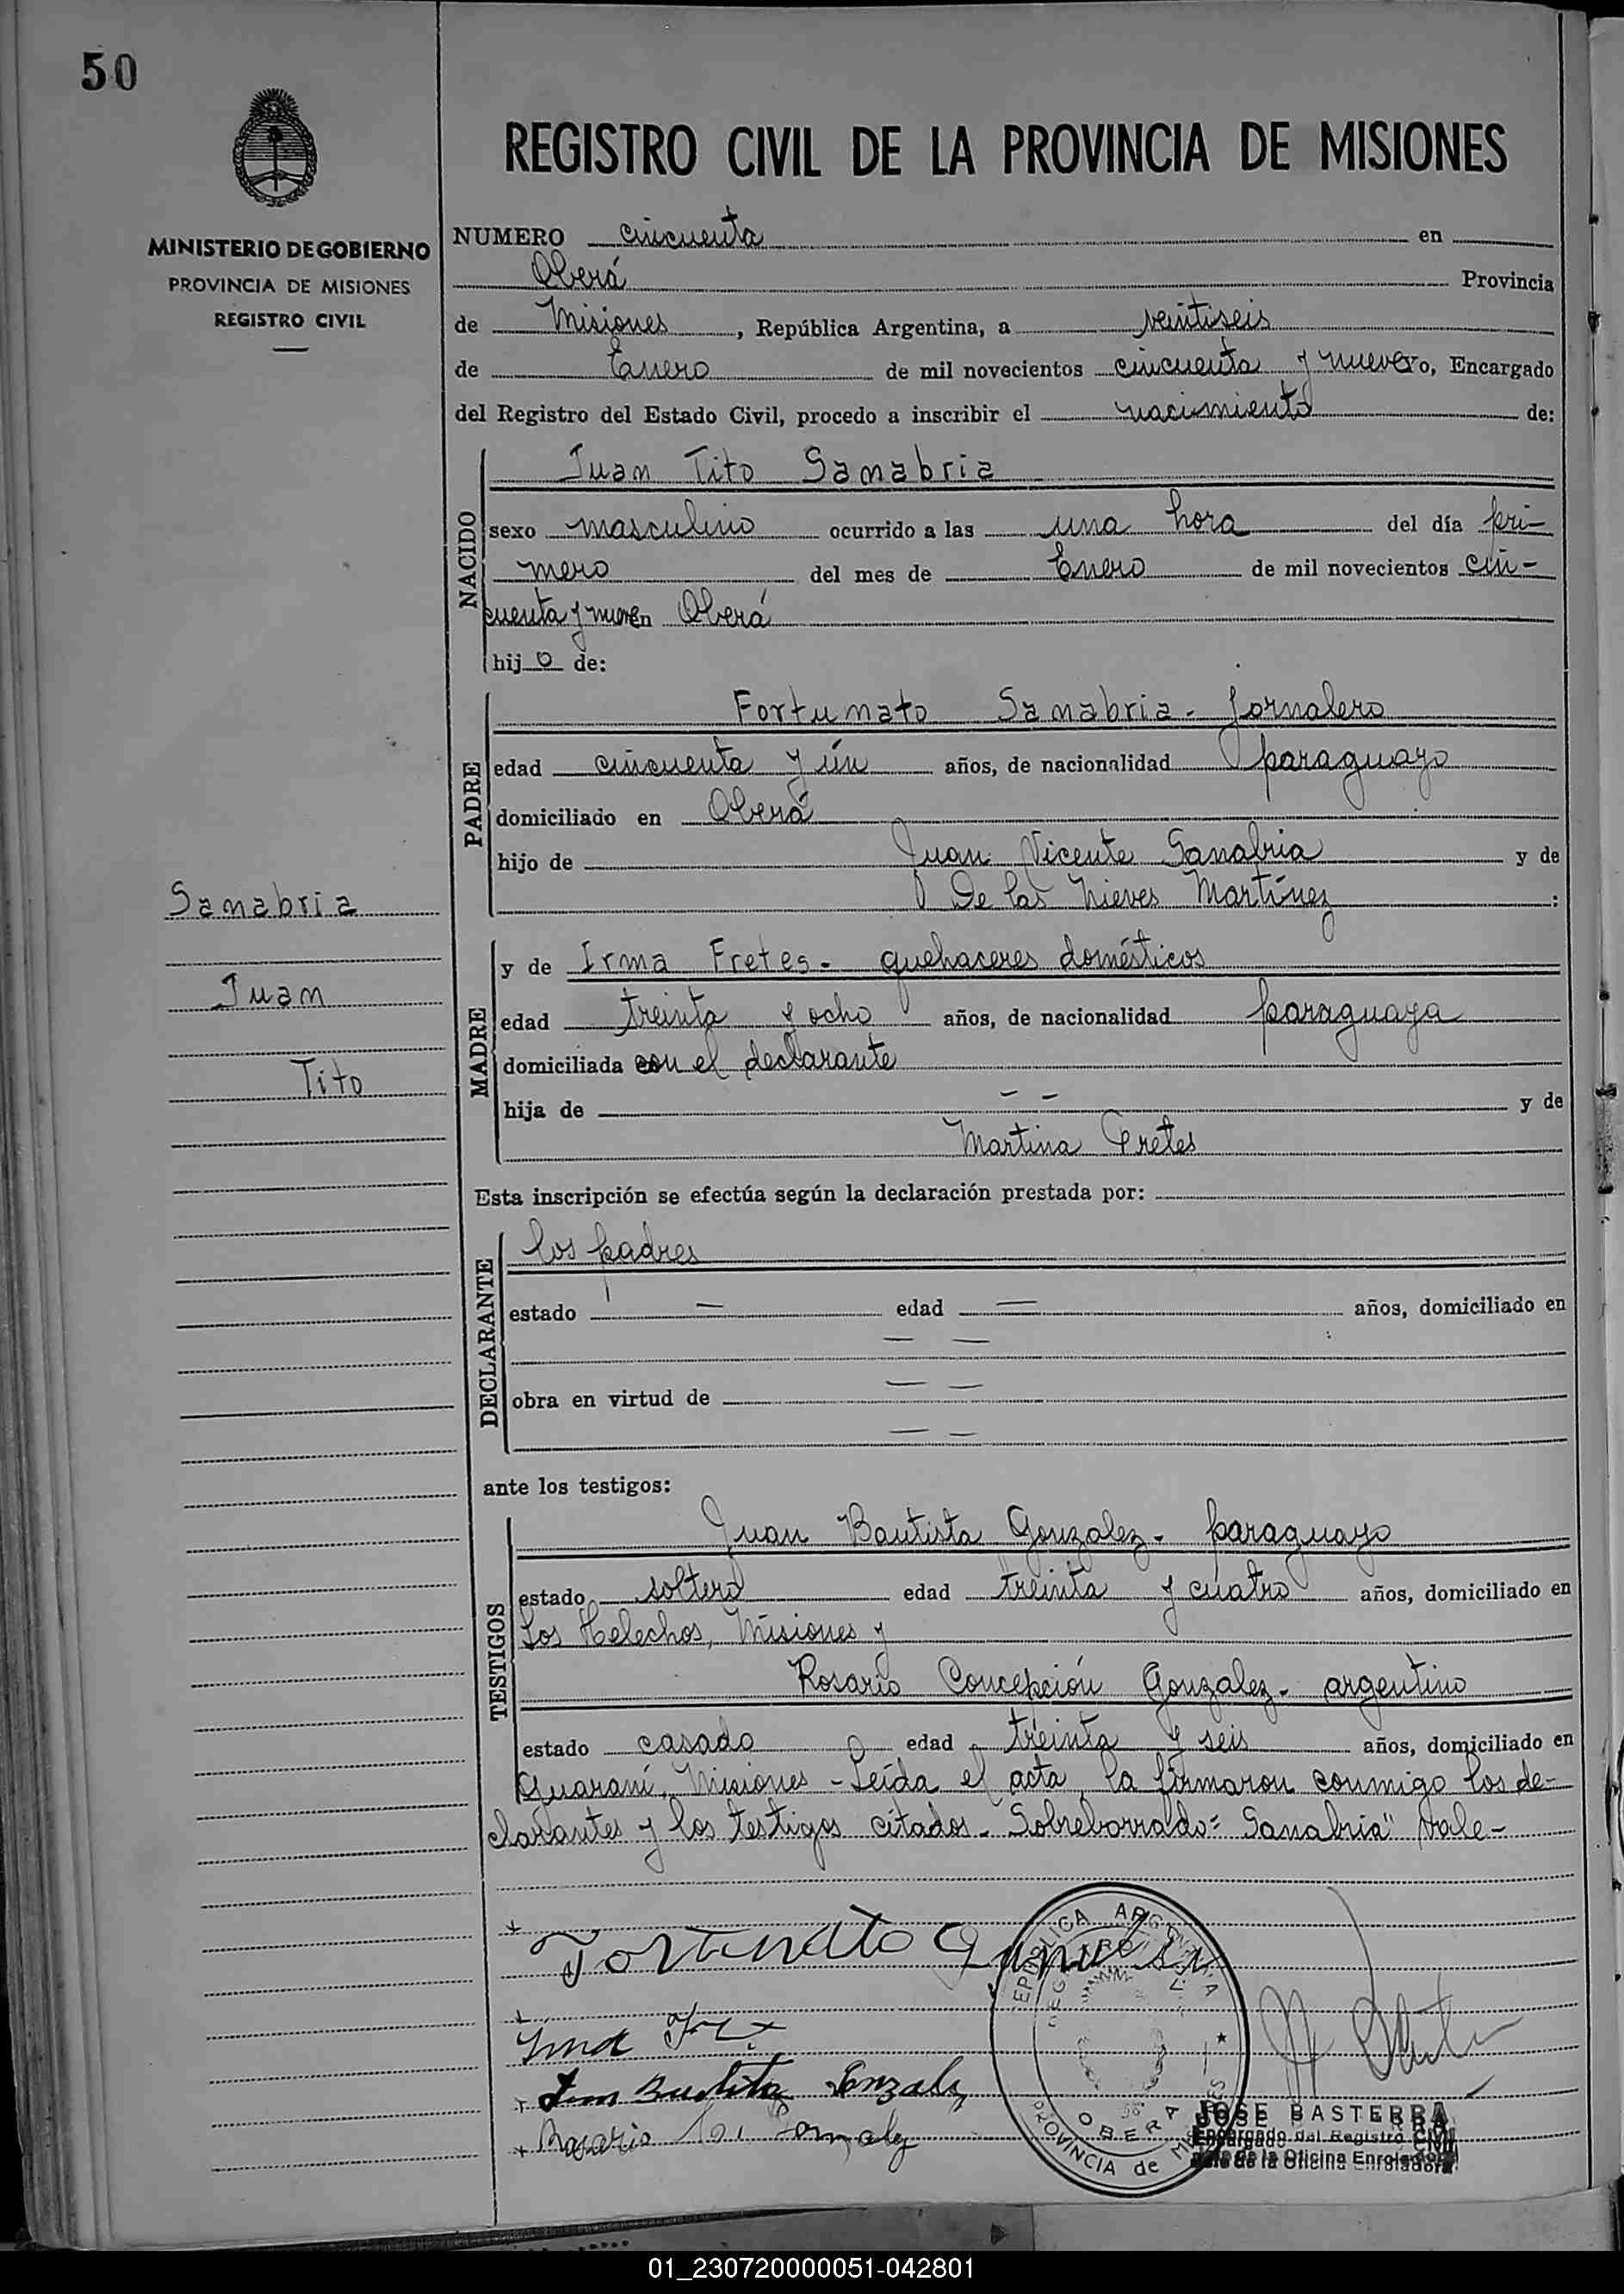 50
REGISTRO CIVIL DE LA PROVINCIA DE MISIONES
MINISTERIO DE GOBIERNO
PROVINCIA DE MISIONES
REGISTRO CIVIL
NUMERO cincuenta en
Oberá Provincia
de Misiones, República Argentina, a veintiseis
de Enero de mil novecientos cincuenta y nueve, Encargado
del Registro del Estado Civil, procedo a inscribir el nacimiento de:
NACIDO
Juan Tito Sanabria
sexo masculino ocurrido a las una hora del día pri-
mero del mes de Enero de mil novecientos cin-
cuenta y nueve en Oberá
hijo de:
PADRE
Fortunato Sanabria - jornalero
edad cincuenta y ún años, de nacionalidad paraguayo
domiciliado en Oberá
hijo de Juan Vicente Sanabria y de
De las Nieves Martínez :
Sanabria
Juan
Tito
MADRE
y de Irma Fretes - quehaceres domésticos
edad treinta y ocho años, de nacionalidad paraguaya
domiciliada con el declarante
hija de - - y de
Martina Fretes
Esta inscripción se efectúa según la declaración prestada por:
DECLARANTE
los padres
estado — edad — años, domiciliado en
— —
obra en virtud de — —
— —
ante los testigos:
TESTIGOS
Juan Bautista Gonzalez - paraguayo
estado soltero edad treinta y cuatro años, domiciliado en
Los Helechos, Misiones y
Rosario Concepción Gonzalez - argentino
estado casado edad treinta y seis años, domiciliado en
Guaraní, Misiones - Leída el acta, la firmaron conmigo los de-
clarantes y los testigos citados - Sobreborrado: "Sanabria" vale -
Fortunato
Irma
Juan Bautista Gonzalez
Rosario Gonzalez
REPUBLICA ARGENTINA
REGISTRO CIVIL
OBERA
PROVINCIA de MISIONES
JOSE BASTERRA
Encargado del Registro Civil
Jefe de la Oficina Enroladora
01_230720000051-042801